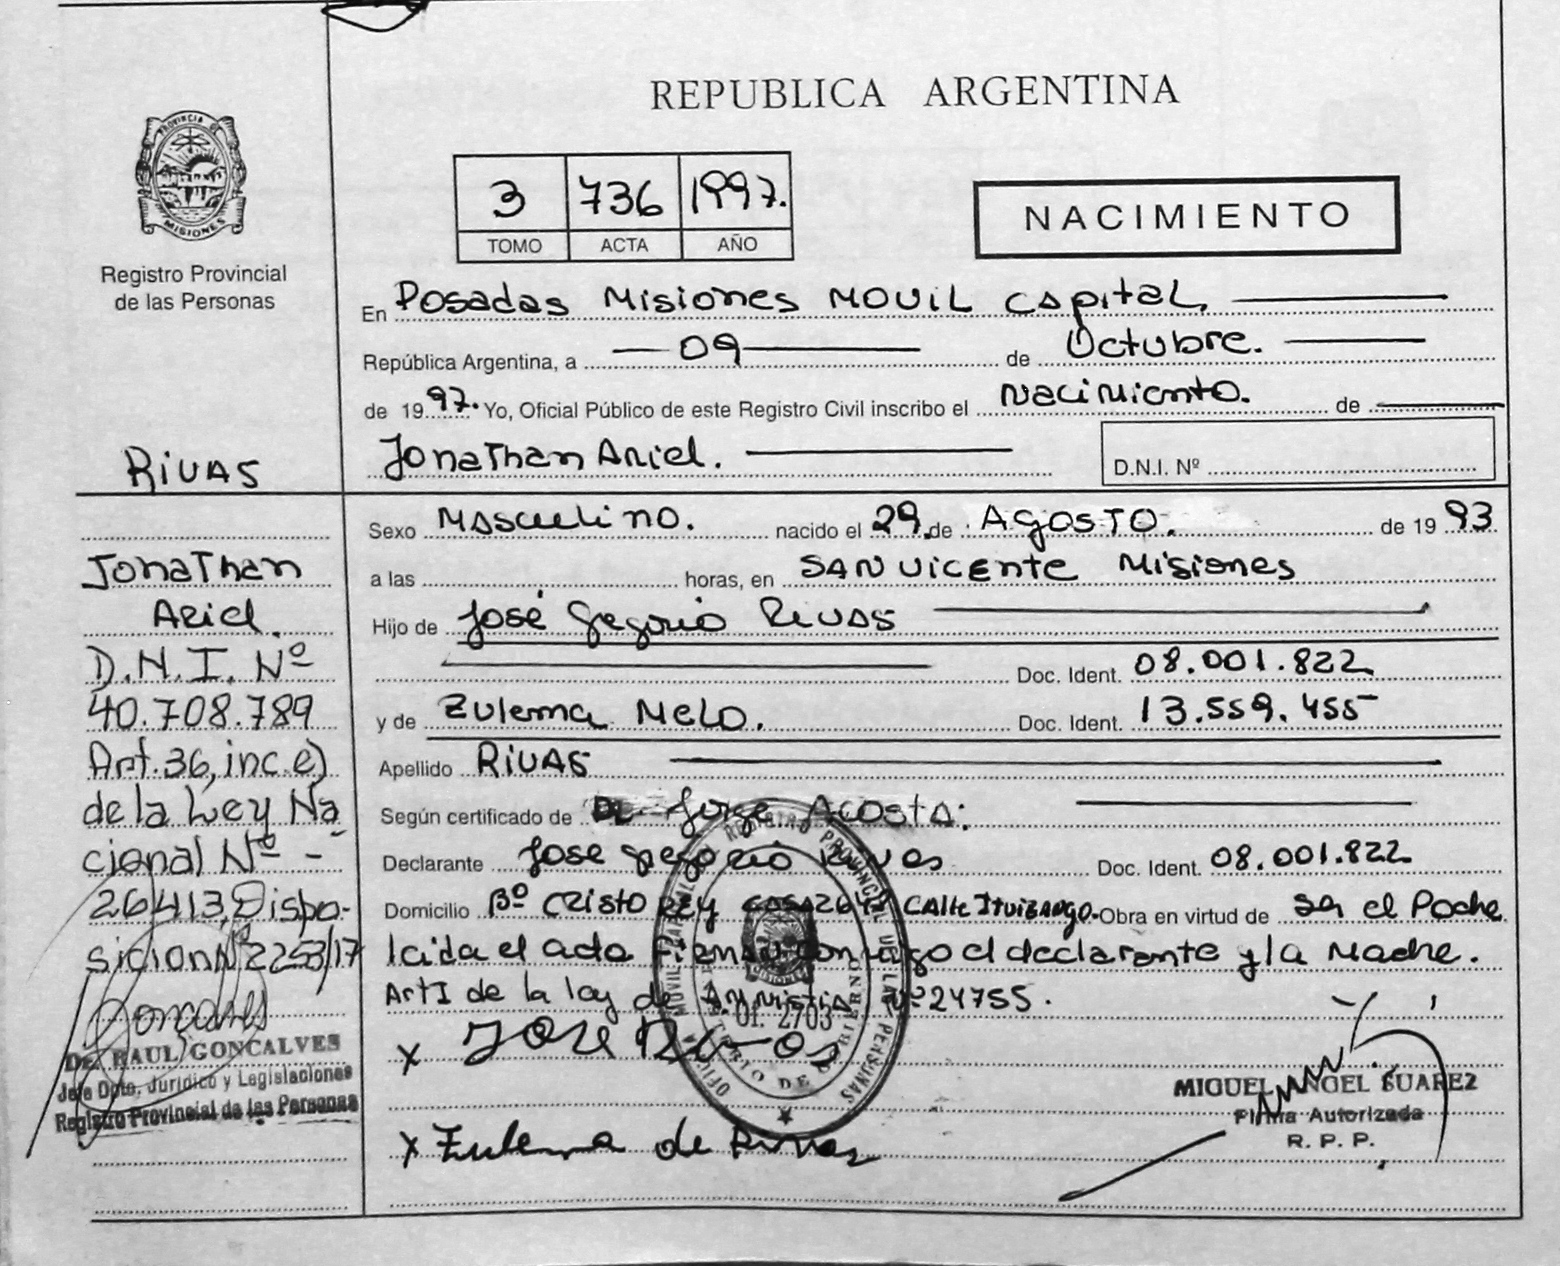 REPUBLICA ARGENTINA
PROVINCIA DE
MISIONES
Registro Provincial
de las Personas
3 736 1997.
TOMO ACTA AÑO
NACIMIENTO
En Posadas Misiones MOVIL Capital,
República Argentina, a 09 de Octubre.
de 1997. Yo, Oficial Público de este Registro Civil inscribo el Nacimiento. de
Jonathan Ariel.
D.N.I. Nº
Sexo Masculino. nacido el 29 de AGOSTO. de 1993
a las horas, en SAN VICENTE Misiones
Hijo de José Gregorio RIVAS
Doc. Ident. 08.001.822
y de Zulema Melo. Doc. Ident. 13.559.455
Apellido RIVAS
Según certificado de DR Jorge Acosta.
Declarante Jose Gregorio Rivas Doc. Ident. 08.001.822
Domicilio Bº CRISTO REY CASA Calle Ituizango. Obra en virtud de ser el Padre
leida el acta Firman conmigo el declarante y la Madre.
Art I de la ley de Amnistia Nº 24755.
x JOSE Rivas
x Zulema de Rivas
MIGUEL ANGEL SUAREZ
Firma Autorizada
R. P. P.
RIVAS
Jonathan
Ariel.
D.N.I. Nº
40.708.789
Art. 36, inc. e)
de la Ley Na
cional Nº -
26413, Dispo-
sición Nº 2253/17
Dr. RAUL GONCALVES
Jefe Dpto. Jurídico y Legislaciones
Registro Provincial de las Personas
REGISTRO PROVINCIAL DE LAS PERSONAS
OFICINA MOVIL
Of. 2703
MINISTERIO DE GOBIERNO